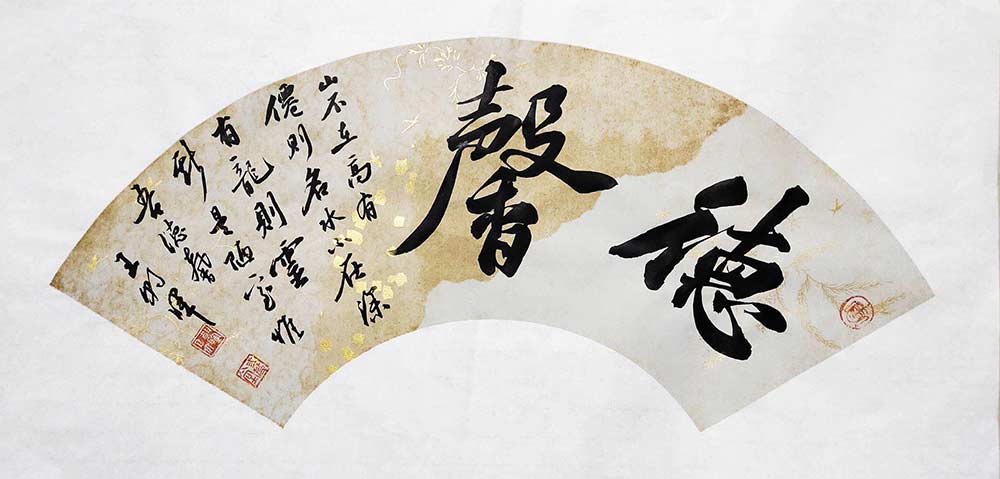 德馨
山不在高有
僊則名水不在深
有龍則靈
斯是陋室惟
吾德馨
王